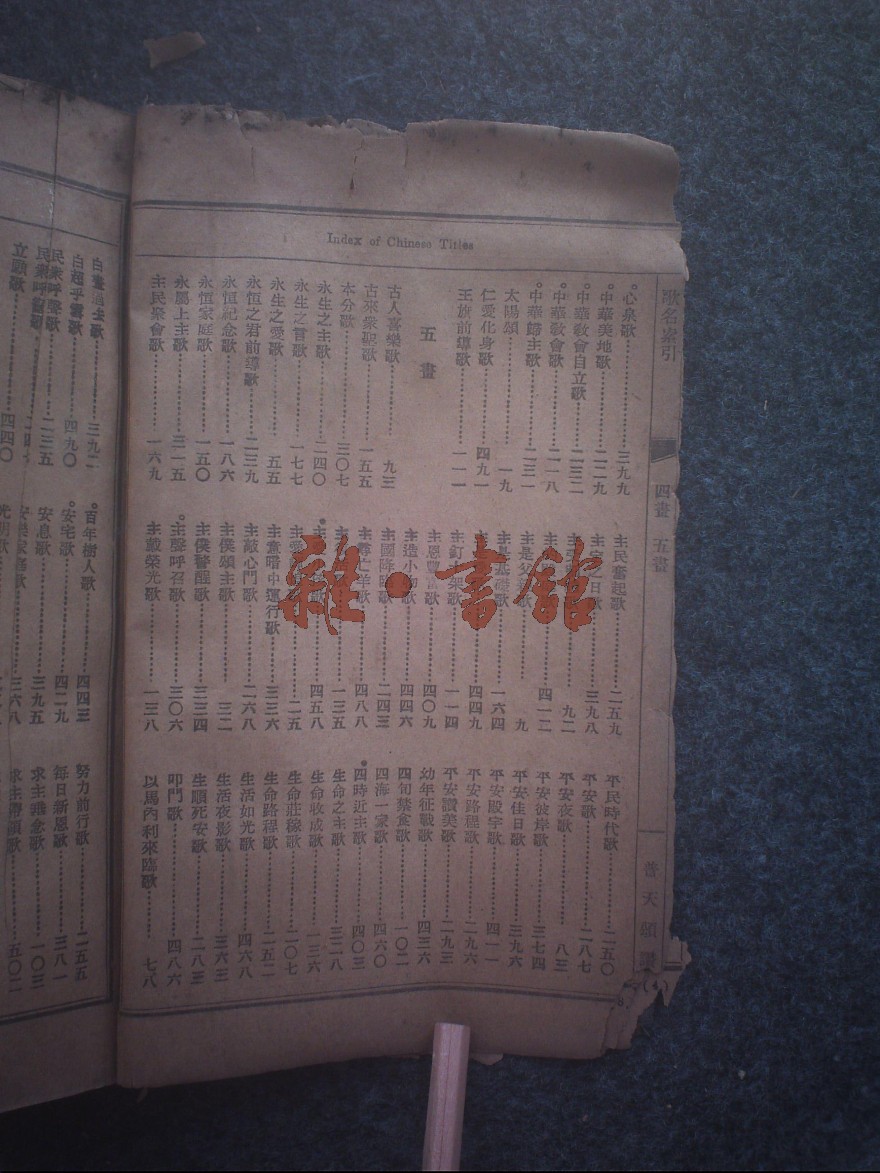 Index of Chinese Titles
歌名索引
四畫 五畫
普天頌讚
心泉歌 三九九
中華美地歌 二二九
中華敎會自立歌 二三二
中華敎會歌 二一八
中華歸主歌 二三一
太陽頌 一九
仁愛化身歌 四九一
王旅前導歌 一一一
五畫
古人喜樂歌 九三
古來衆聖歌 一五五
本分歌 三〇七
永生之主歌 二四〇
永生之言歌 一七七
永生之愛歌 五五
永恒之君前導歌 二三九
永恒紀念歌 一八六
永恒家庭歌 一五〇
永屬上主歌 三一五
主民衆會歌 一六九
主民奮起歌 二五九
主定之日歌 三九八
九二
四一二
主是父歌 九
主是基礎歌 一六四
四四九
主釘十架歌 一一四
主恩豐富歌 四〇九
主造小物歌 四四六
主國降臨歌 二四三
主尋亡羊歌 四八八
一三五
四五八
主愛 二五
主意暗中運行歌 三三六
主敲心門歌 二六八
主僕頌主歌 三二
主僕警醒歌 三三四
主聲呼召歌 三〇六
主戴榮光歌 一三八
平民時代歌 二五〇
平安歌 二八七
平安夜歌 八三
平安彼岸歌 三七四
平安佳日歌 三九六
平安殿宇歌 四一一
平安路程歌 二九六
平安讚美歌 二九三
幼年征戰歌 四三六
四旬禁食歌 一〇二
四海一家歌 四六〇
四時近主歌 四〇三
生命之主歌 三二八
生命收成歌 一三六
生命莊稼歌 二〇七
生命路程歌 二五二
生活如光歌 四六八
生活夜影歌 三六三
生順死安歌 二八三
叩門歌 四八六
以馬內利來臨歌 七八
白晝過去歌 三九二
白超乎雪歌 四九〇
民衆呼聲歌 二三五
立願歌 四四〇
百年樹人歌 四四三
安宅歌 四二九
安息歌 三九五
安樂家庭歌 三六八
光明歌
努力前行歌 二五五
每日新恩歌 三八一
求主垂念歌 一〇三
求主帶領歌 五〇二
雜·書館